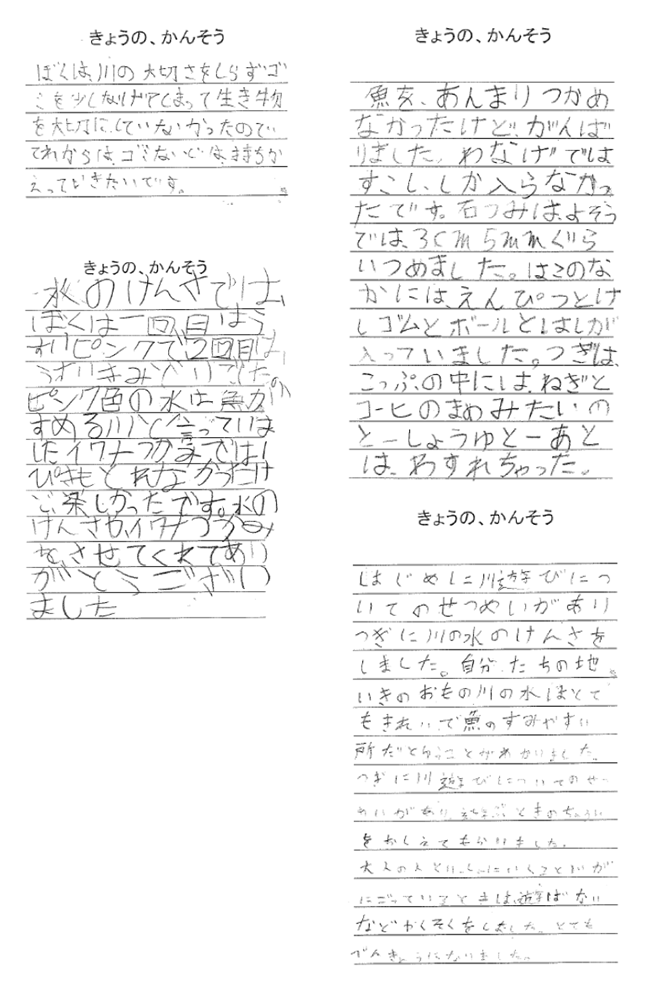 きょうの、かんそう
ぼくは、川の大切さをしらずゴ
ミを少しなげてしまって生き物
を大切にしていなかったので、
これからは、ゴミないでは、持ちか
えっていきたいです。
きょうの、かんそう
水のけんさでは、
ぼくは一回目はう
すいピンクで2回目は、
うすいきみどりでした。
ピンク色の水は魚がの
すめる川と言っていま
したイワナつかみでは1
ぴきもとれなかったけ
ど楽しかったです。水の
けんさやイワナつかみ
を、させてくれてあり
がとうござい
ました
きょうの、かんそう
魚を、あんまりつかめ
なかったけど、がんば
りました。わなげでは
すこし、しか入らなかっ
たです。石つみは、よそう
では、3cm5mmぐら
いつめました。はこのな
かには、えんぴつとけ
しゴムとボールとはしが
入っていました。つぎは、
こっぷの中には、ねぎと
コーヒのまめみたいの
とーしょうゆとーあと
は、わすれちゃった。
きょうの、かんそう
はじめに川遊びにつ
いてのせつめいがあり
つぎに川の水のけんさを
しました。自分たちの地
いきのおもの川の水はとて
もきれいで魚のすみやすい
所だということがわかりました。
つぎに川遊びについてのせつ
めいがあり、遊ぶときのちゅうい
をおしえてもらいました。
大人の人といっしょにいくことや川が
にごっているときは、遊ばない
などやくそくをしました。とても
べんきょうになりました。